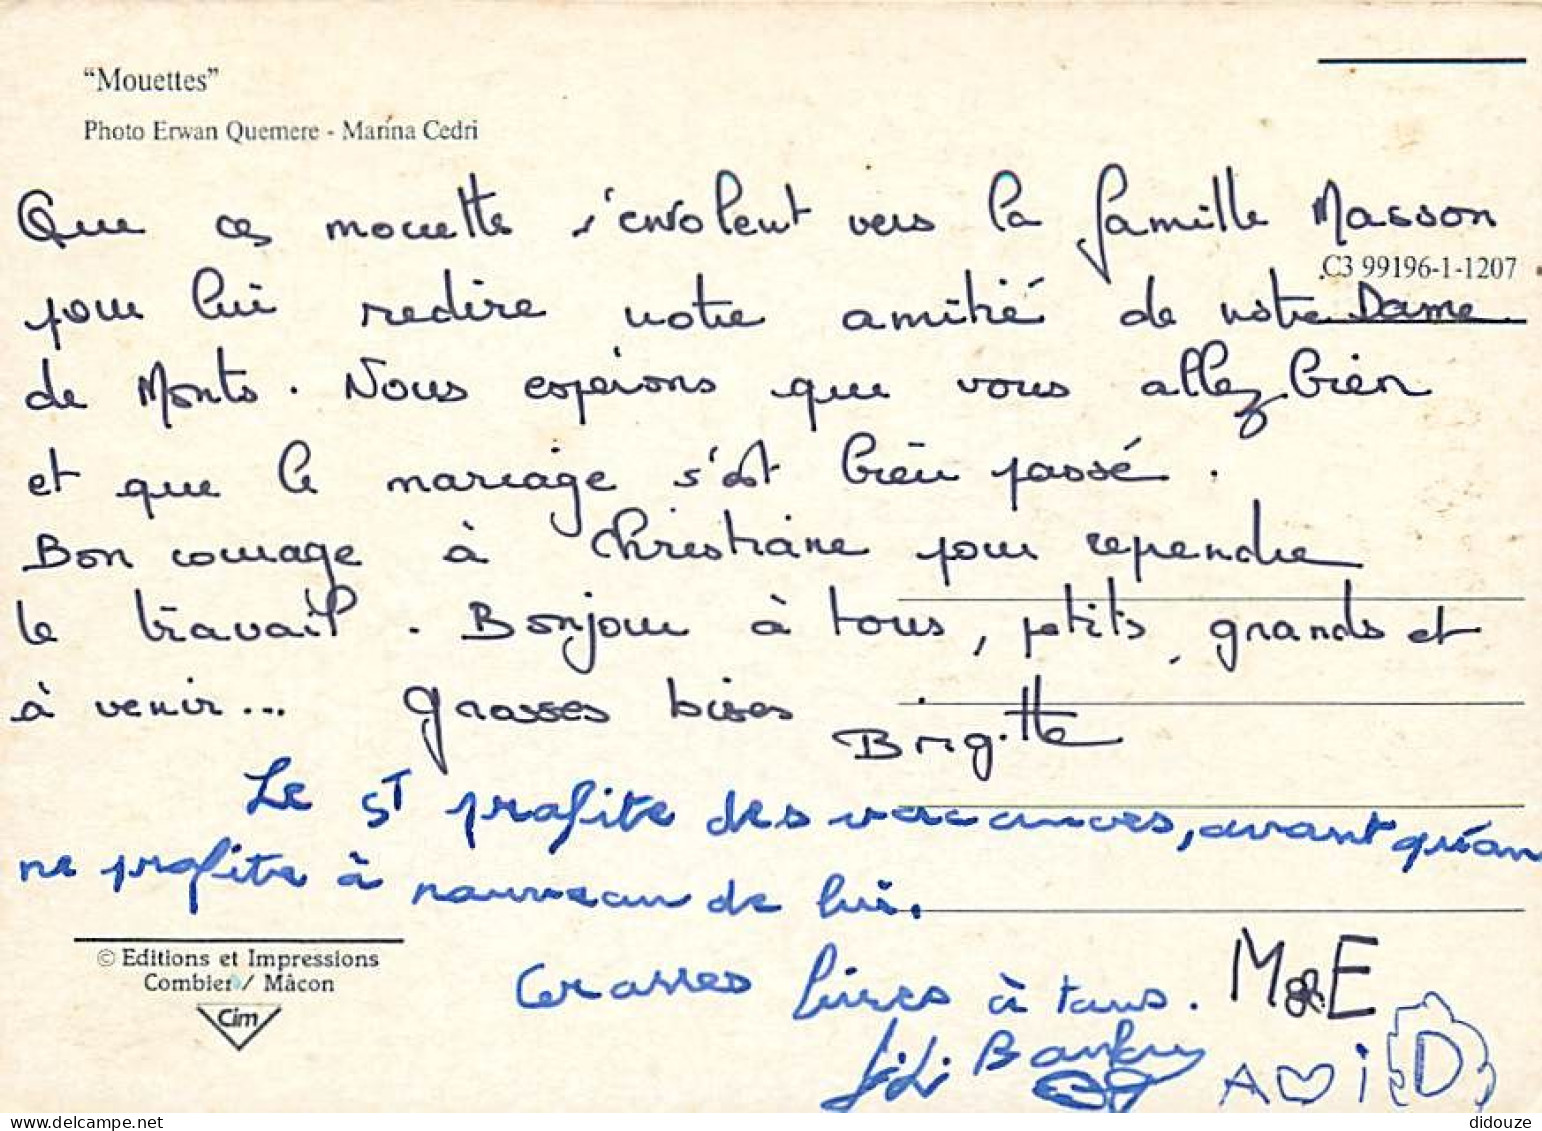 “Mouettes”
Photo Erwan Quemere - Marina Cedri
Que ces mouette s'envolent vers la famille Masson
C3 99196-1-1207
pour lui redire notre amitié de notre Dame
de Monts. Nous espérons que vous allez bien
et que le mariage s'est bien passé.
Bon courage à Christiane pour reprendre
le travail. Bonjour à tous, petits, grands et
à venir... grosses bises
Brigitte
Le ST profite des vacances, avant qu'on
ne profite à nouveau de lui.
© Editions et Impressions
Combier / Mâcon
Cim
Grosses bises à tous.
M&E
D
didouze